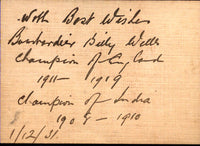 With Best Wishes
Bombardier Billy Wells
Champion of England
1911 - 1919
Champion of India
1909 - 1910
1/12/31